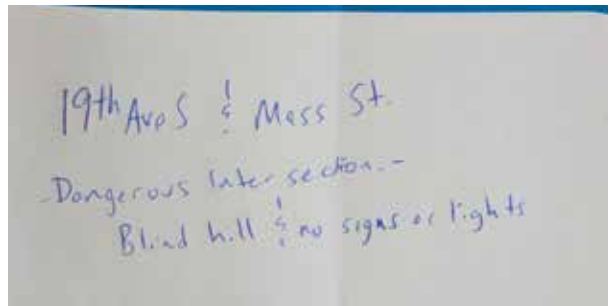 19th Ave S & Mass St.
-Dangerous Intersection.-
Blind hill & no signs or lights